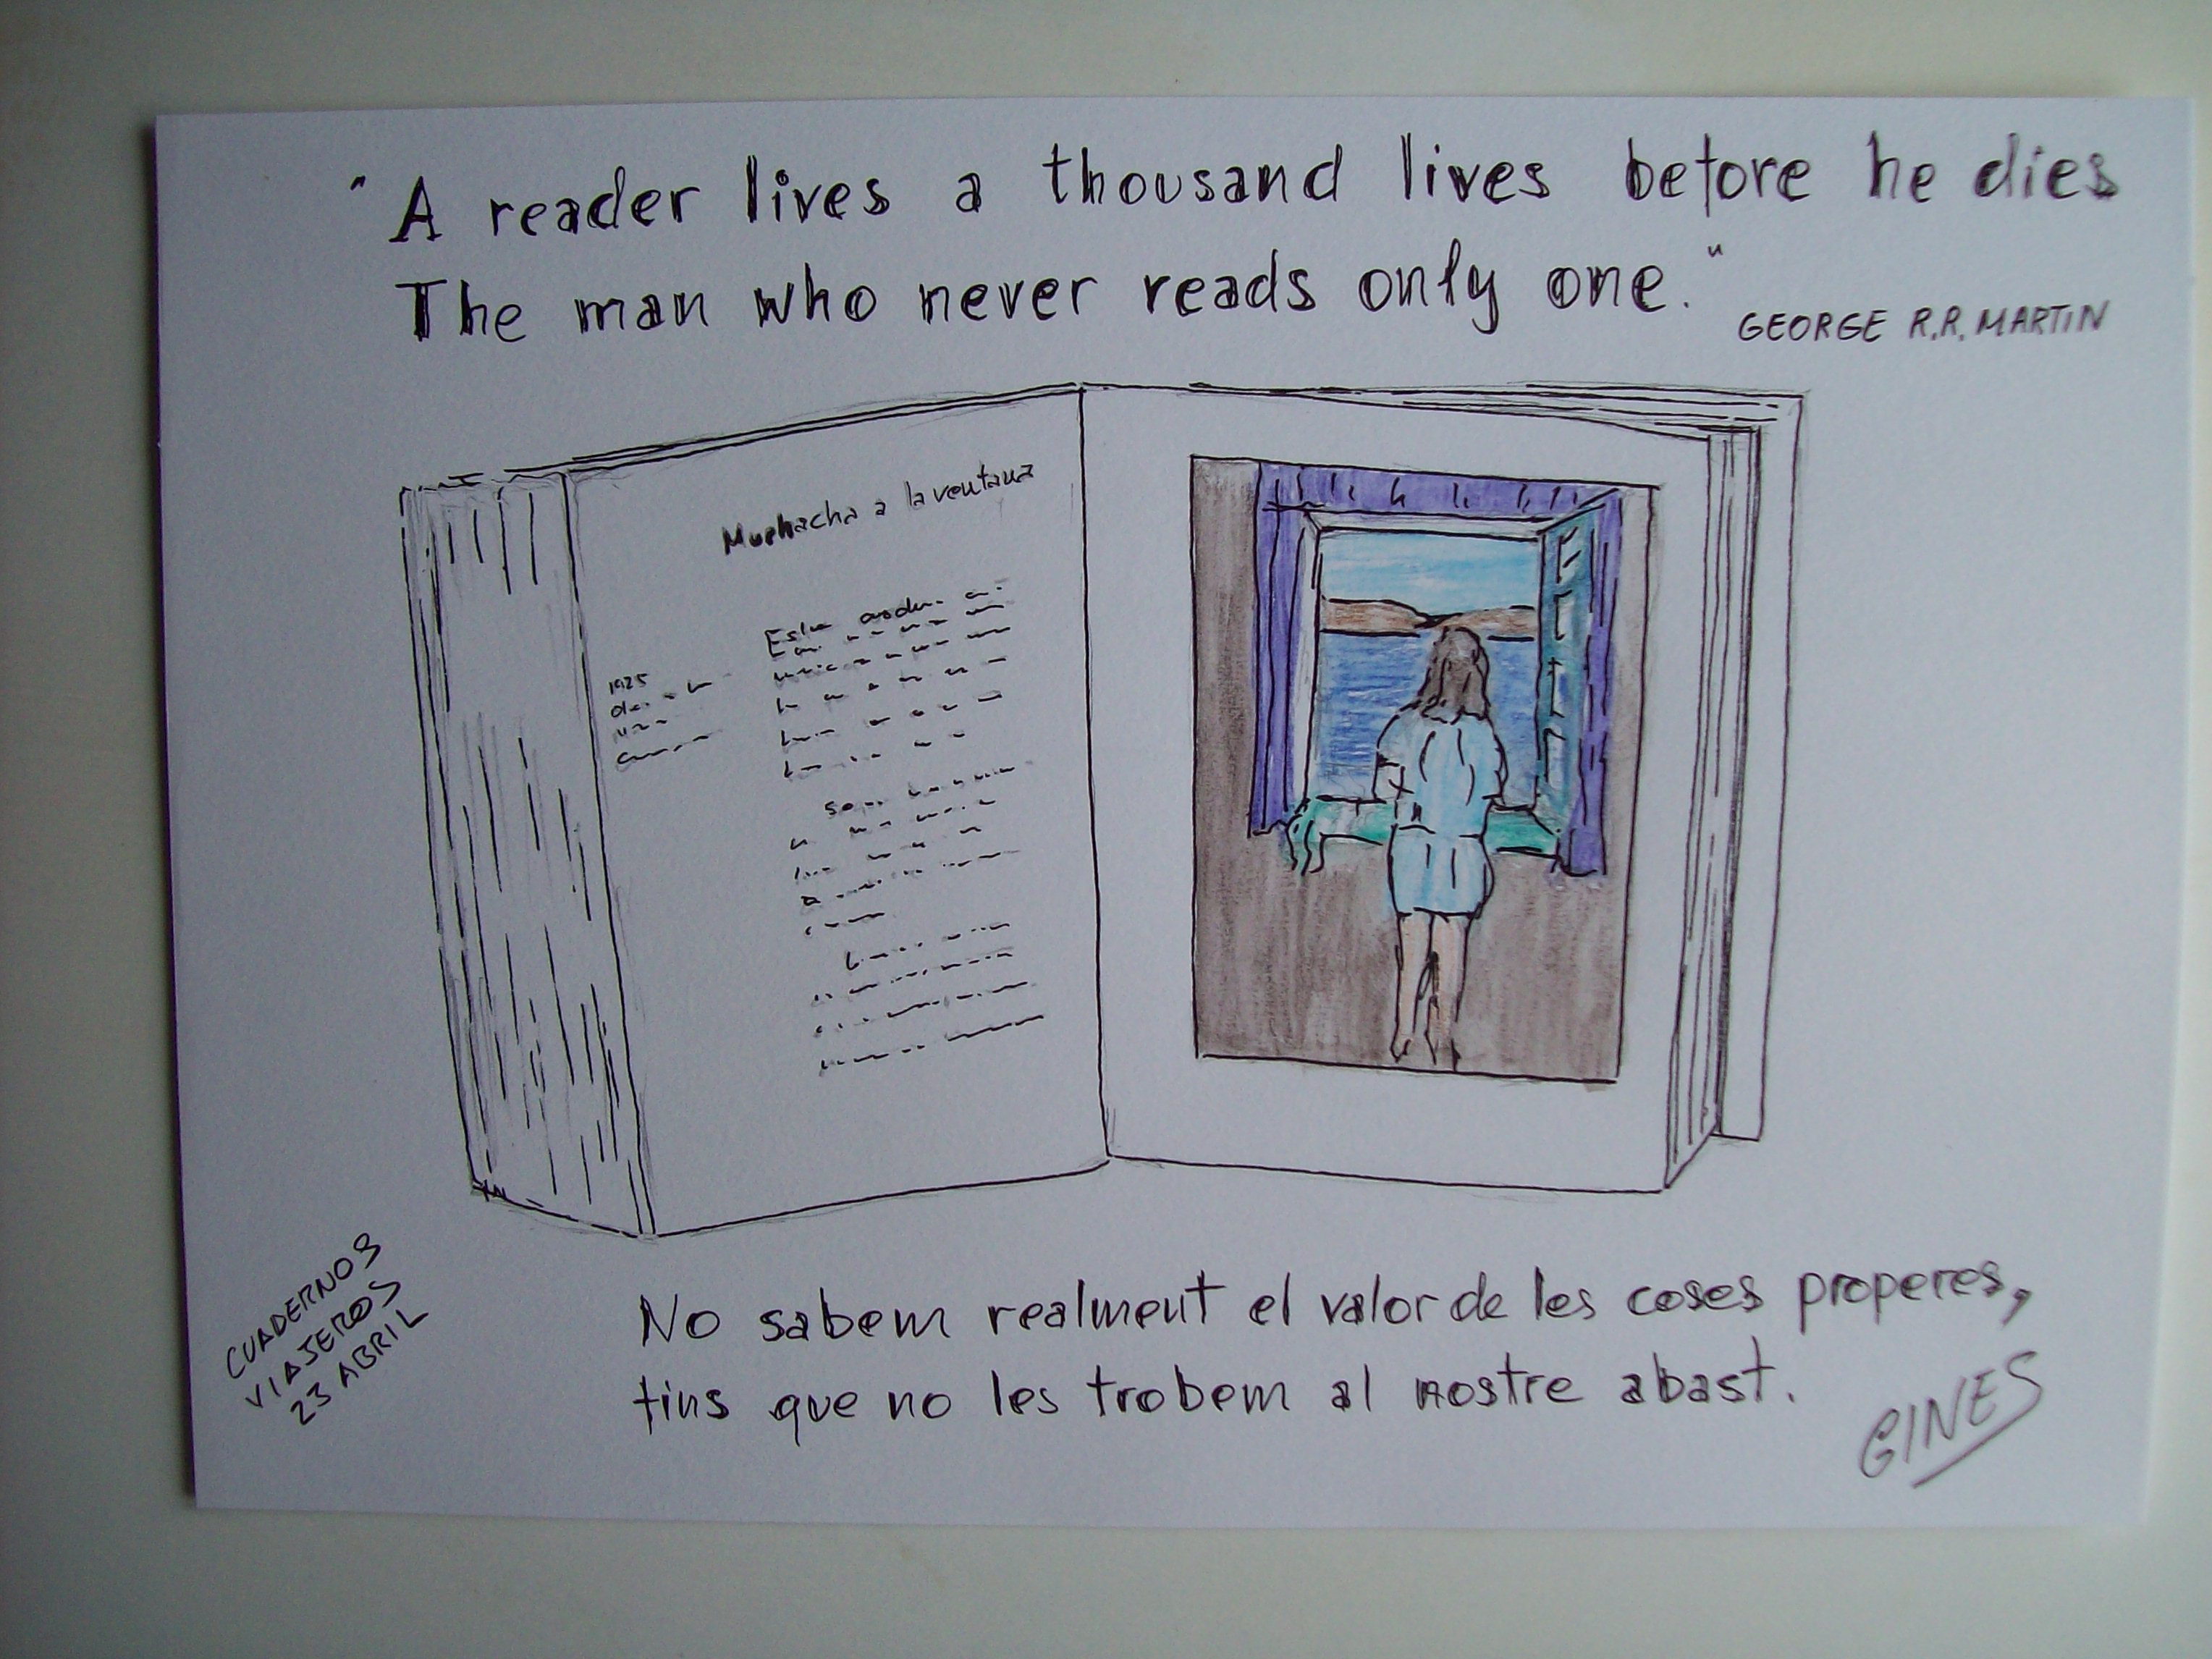 "A reader lives a thousand lives before he dies
The man who never reads only one."
GEORGE R.R. MARTIN
Muchacha a la ventana
1925
CUADERNOS
VIAJEROS
23 ABRIL
No sabem realment el valor de les coses properes,
tins que no les trobem al nostre abast.
GINES